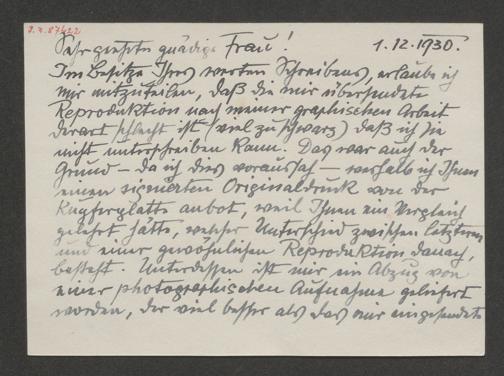 J.N. 87422
Sehr geehrte gnädige Frau! 1.12.1930.
Im Besitze Ihres werten Schreibens, erlaube ich
mir mitzuteilen, daß die mir übersendete
Reproduktion nach meiner graphischen Arbeit
derart schlecht ist (viel zu schwarz) daß ich sie
nicht unterschreiben kann. Das war auch der
Grund – da ich dies voraussah – weshalb ich Ihnen
einen signierten Originaldruck von der
Kupferplatte anbot, weil Ihnen ein Vergleich
gelehrt hätte, welcher Unterschied zwischen letzterem
und einer gewöhnlichen Reproduktion danach,
besteht. Unterdessen ist mir ein Abzug von
einer photographischen Aufnahme geliefert
worden, der viel besser als das mir eingesendete